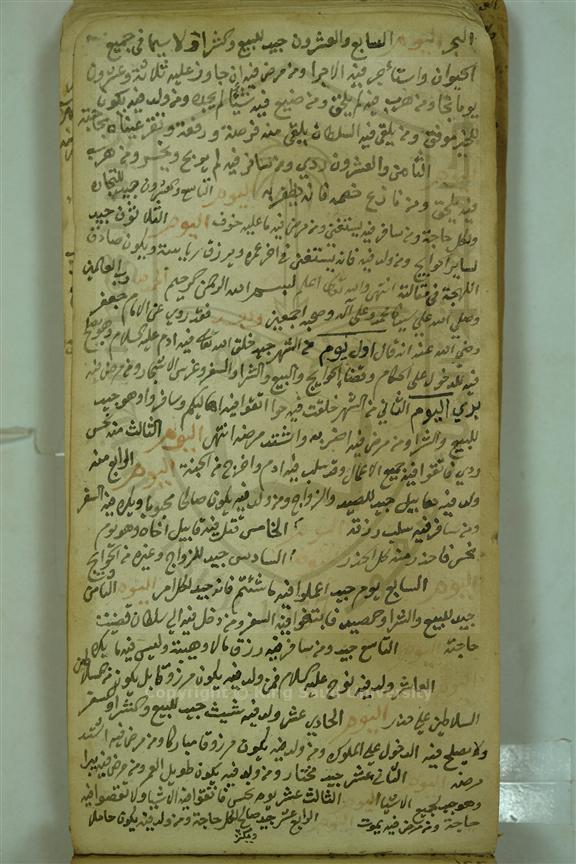 البحر اليوم السابع والعشرون جيد للبيع وكشراء ولا سيما في جميع
الحيوان واستأجر فيه الاجرا ومن مرض فيه ان جاوز عليه ثلاثة وعشرون
يوما نجا ومن هرب فيه لم يلحق ومن ضيع فيه شيئا لم يجده ومن ولد فيه يكون
للخير موفق ومن يلقى فيه السلطان يلقى منه فرحة ورفعة
الثامن والعشرون ردي ومن سافر فيه لم يربح ويخسر ومن هرب
فيه يلحق ومن نازع خصمه فانه يظفر به اليوم التاسع وكعشرون جيد للتجارة
ولكل حاجة ومن سافر فيه يستغنى ومن مرض فيه ما عليه خوف اليوم الثلاثون جيد
لساير الحوايج ومن ولد فيه فانه يستغنى في اخر عمره ويرزق رياسة ويكون صادق
اللهجة في مقالته انتهى والله تعالى اعلم بسم الله الرحمن الرحيم الحمد لله رب العالمين
وصلى الله على سيدنا محمد وعلى آله وصحبه اجمعين وبعد فقد روي عن الامام جعفر
رضي الله عنه انه قال اول يوم من الشهر جيد خلق الله تعالى فيه ادم عليه السلام وهو يصلح
فيه للدخول على الحكام وقضاء الحوايج والبيع والشرا والسفر وغرس الاشجار ومن مرض فيه
بري اليوم الثاني من الشهر خلقت فيه حوا اتقوا فيه اهاليكم وسافروا وهو جيد
للبيع والشرا ومن مرض فيه اضر به واشتد مرضه انتهى اليوم الثالث منه نحس
ردي فاتقوا فيه جميع الاعمال وقد سلب فيه ادم واخرج من الجنة اليوم الرابع منه
ولد فيه هابيل جيد للصيد والزواج ومن ولد فيه يكون صالحا محبوبا ويكره فيه السفر
ومن سافر فيه سلب رزقه اليوم الخامس قتل فيه قابيل اخاه وهو يوم
نحس فاحذر منه كل الحذر اليوم السادس جيد للزواج وغيره من الحوايج
اليوم السابع يوم جيد اعملوا فيه ما شئتم فانه جيد لكل امر اليوم الثامن
جيد للبيع والشرا فيه السفر ومن دخل فيه الى سلطان قضيت
حاجته اليوم التاسع جيد ومن سافر فيه رزق مالا وهيبة وليس فيه
العاشر ولد فيه نوح عليه السلام فمن ولد فيه يكون مرزوقا بل يكون من
السلاطين على حذر اليوم الحادي عشر ولد فيه شيث جيد للبيع وكشرا وكسفر
ولا يصلح فيه الدخول على الملوك ومن ولد فيه يكون مرزوقا مباركا ومن مرض فيه اشتد
مرضه اليوم الثاني عشر جيد مختار ومن ولد فيه يكون طويل العمر ومن مرض فيه يبرا
وهو جيد لجميع الاشيا اليوم الثالث عشر يوم نحس فاتقوا فيه الاشيا ولا تقضوا فيه
حاجة ومن مرض فيه يموت الرابع عشر جيد صالح لكل حاجة ومن ولد فيه يكون
Copyright © King Saud University